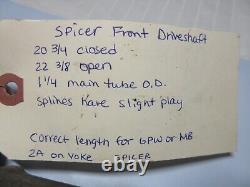 Spicer Front Driveshaft
20 3/4 closed
22 3/8 open
1 1/4 main tube O.D.
splines have slight play
Correct length for GPW or MB
2A on yoke SPICER